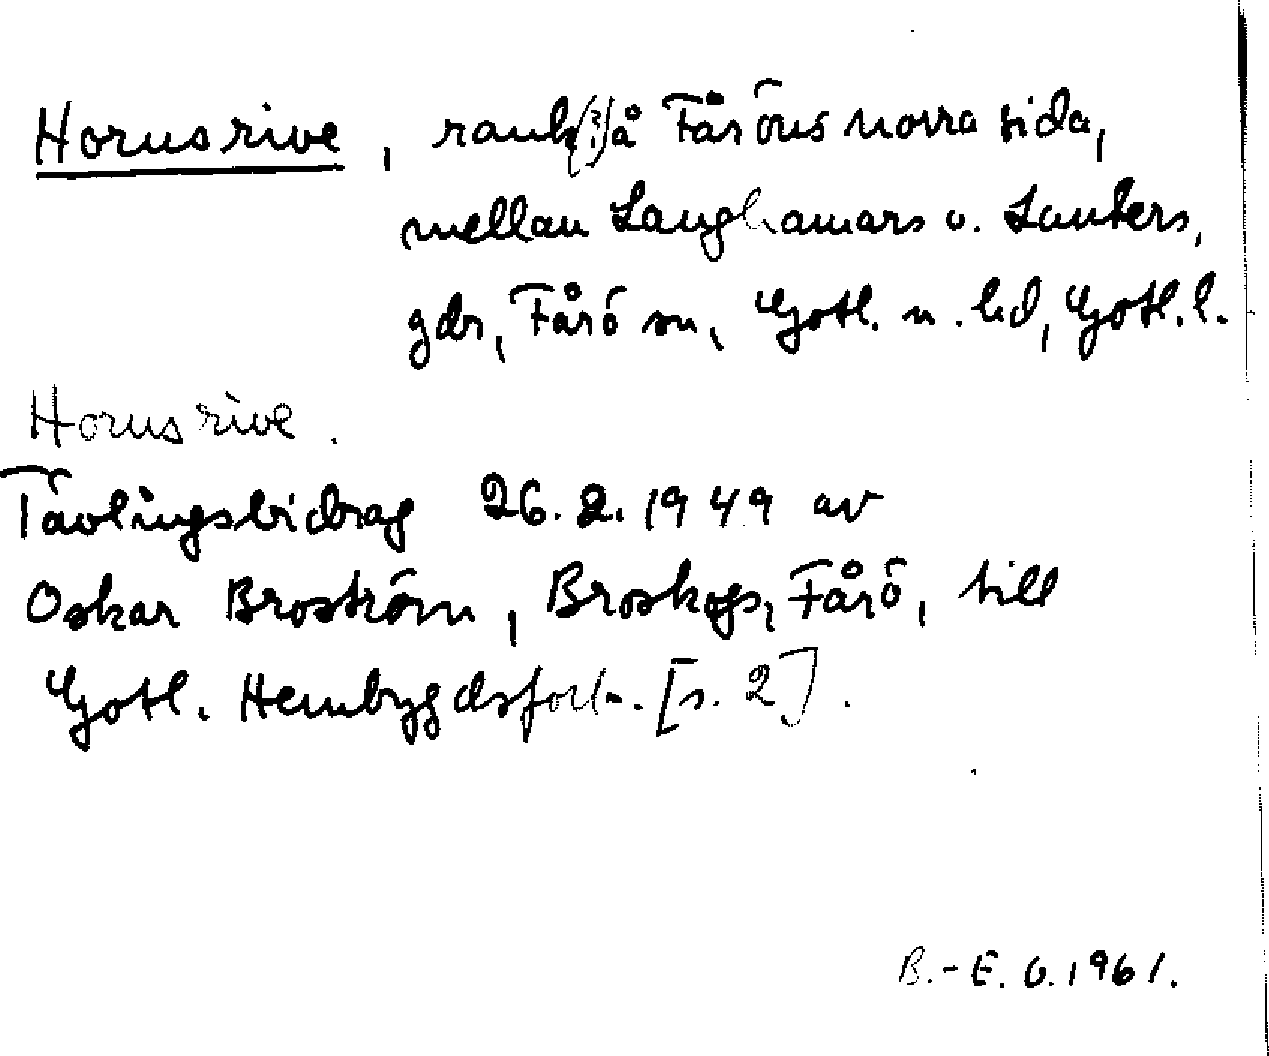 Hornsrive, rauk(?) å Fåröns norra sida,
mellan Langhamars o. Lauters,
gdr, Fårö sn, Gotl. n. hd, Gotl. l.
Hornsrive.
Tävlingsbidrag 26.2.1949 av
Oskar Broström, Broskogs, Fårö, till
Gotl. Hembygdsförb. [s. 2].
B.-E. O. 1961.